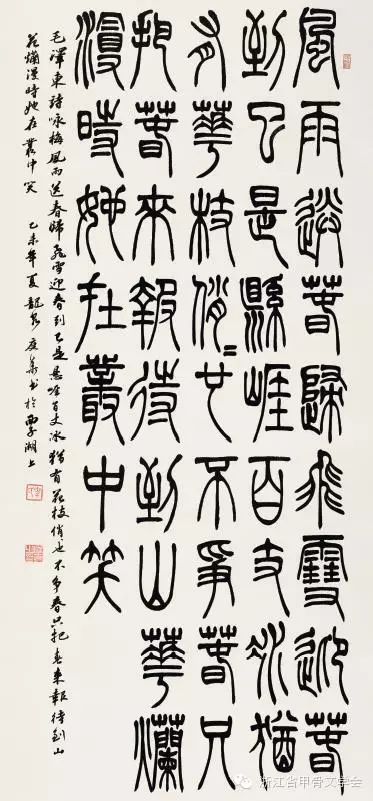 風雨送春歸飛雪迎春
到已是縣崖百丈冰猶
有華枝俏=也不爭春只
把春來報待到山華爛
漫時她在叢中笑
毛澤東詩詠梅風雨送春歸飛雪迎春到已是懸崖百丈冰猶有花枝俏也不爭春只把春來報待到山
花爛漫時她在叢中笑 乙未年夏龍泉書於西子湖上
浙江省甲骨文学会